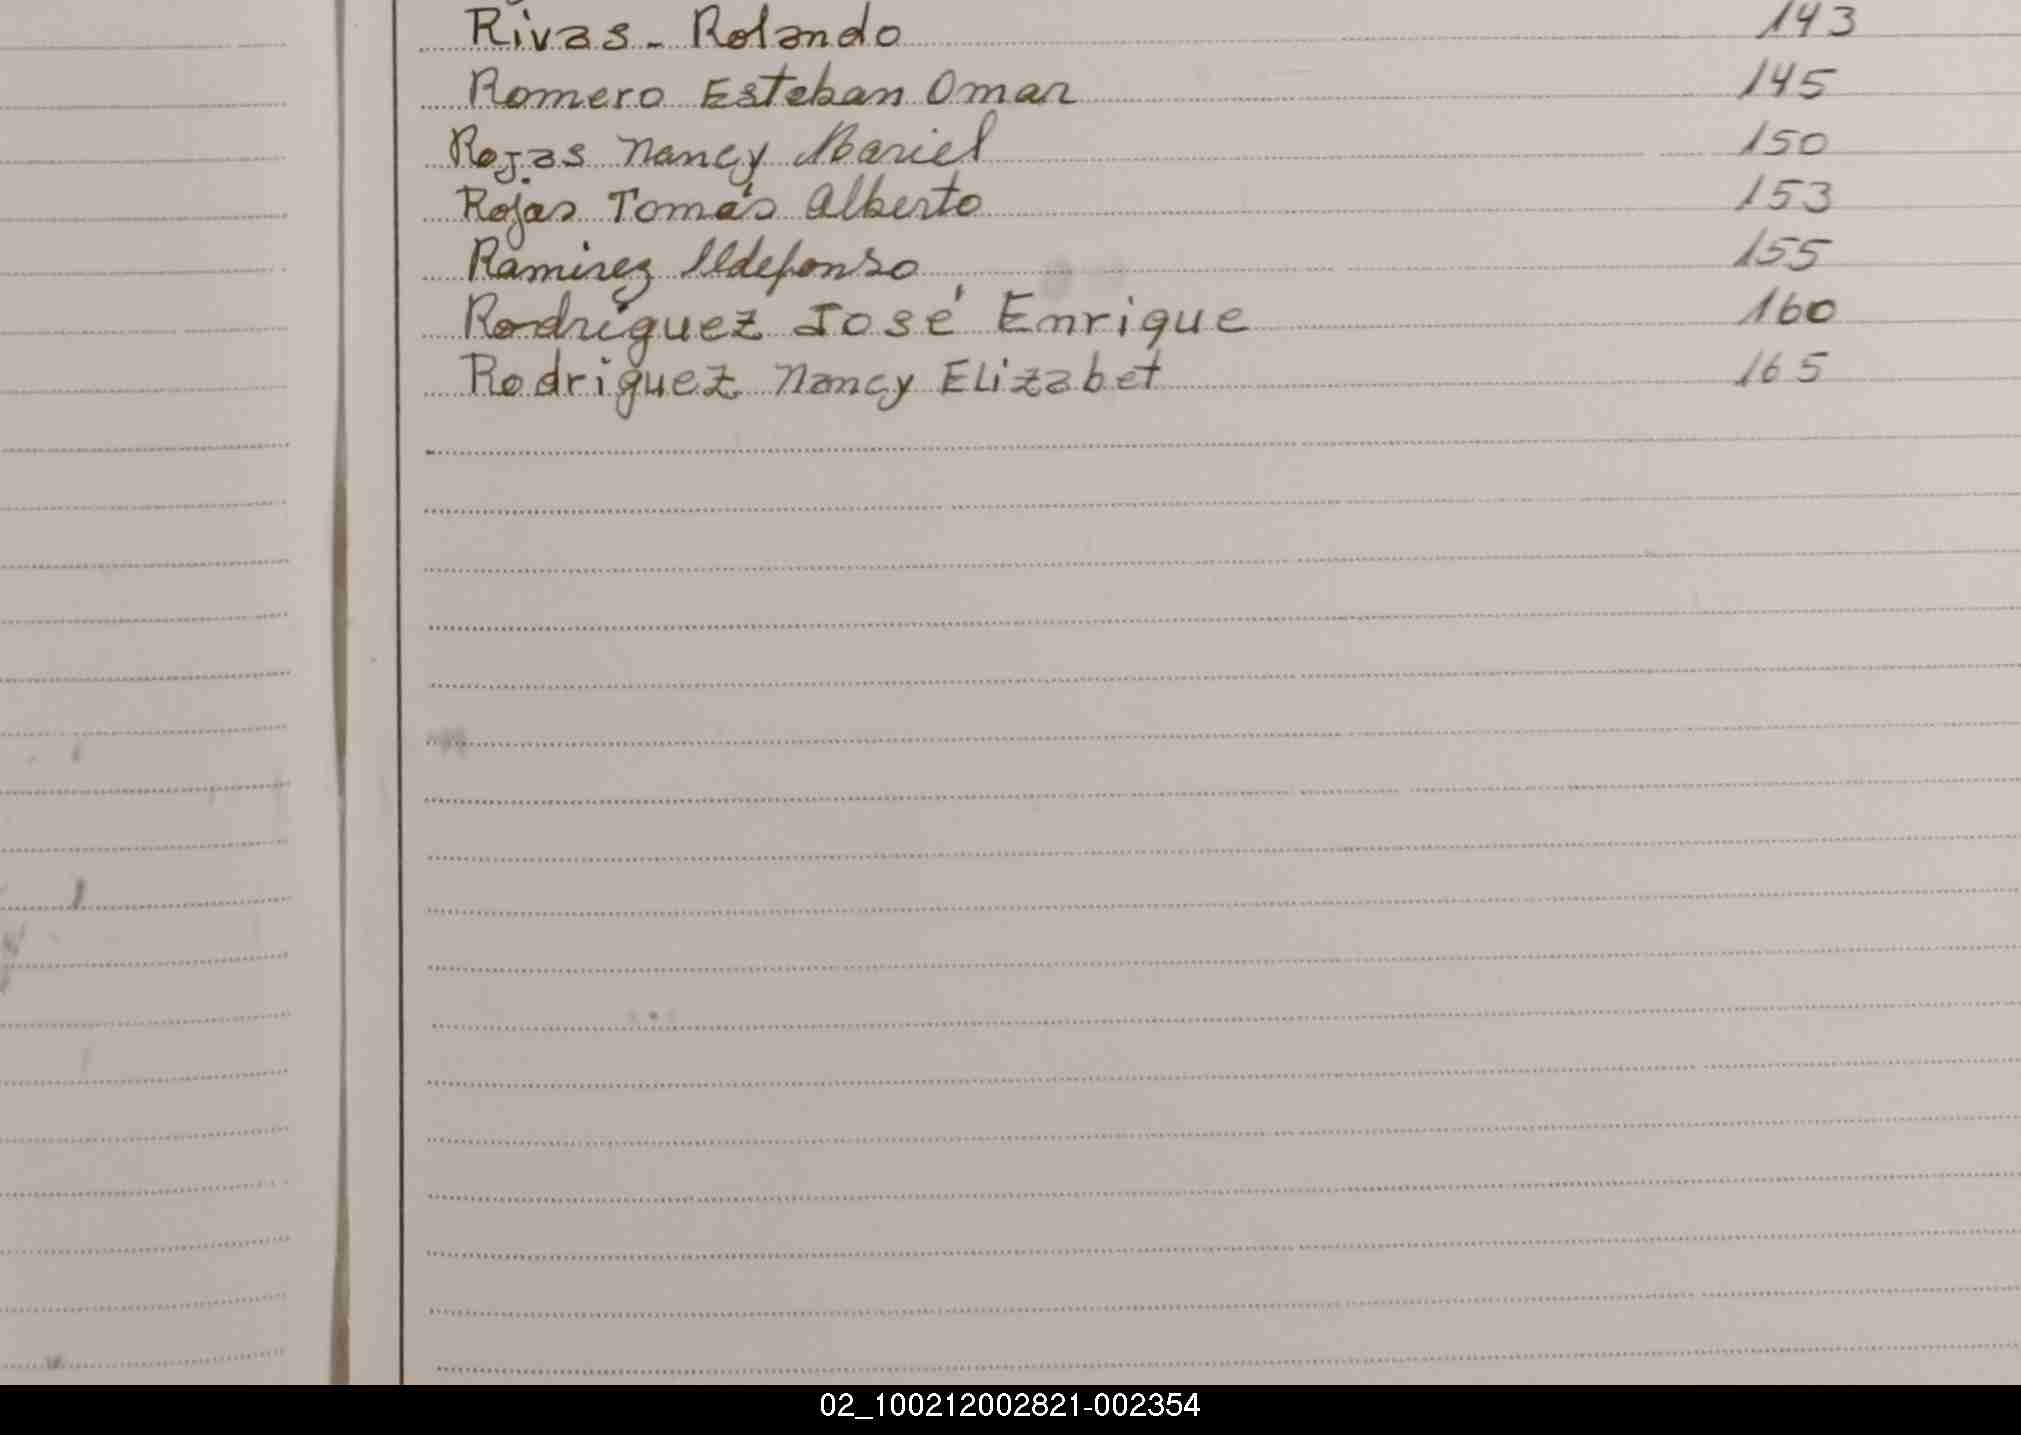 Rivas - Rolando 143
Romero Esteban Omar 145
Rojas Nancy Mariel 150
Rojas Tomás Alberto 153
Ramirez Ildefonso 155
Rodríguez José Enrique 160
Rodriguez Nancy Elizabet 165
02_100212002821-002354